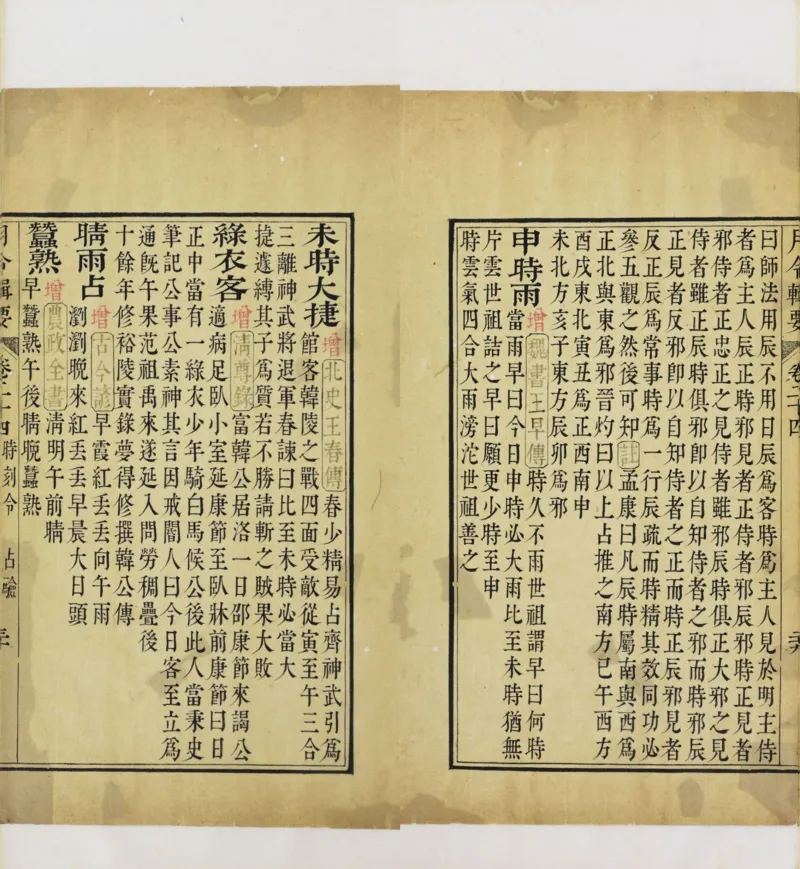 月令輯要
卷二十四
曰師法用辰不用日辰爲客時爲主人見於明主侍
者爲主人辰正時邪見者正侍者邪辰邪時正見者
邪侍者正忠正之見侍者雖邪辰時俱正大邪之見
侍者雖正辰時俱邪卽以自知侍者之邪而時邪辰
正見者反邪卽以自知侍者之正而時正辰邪見者
反正辰爲常事時爲一行辰疏而時精其效同功必
參五觀之然後可知註孟康曰凡辰時屬南與西爲
正北與東爲邪晉灼曰以上占推之南方巳午西方
酉戌東北寅丑爲正西南申
未北方亥子東方辰卯爲邪
申時雨增魏書王早傳時久不雨世祖謂早曰何時
當雨早曰今日申時必大雨比至未時猶無
片雲世祖詰之早曰願更少時至申
時雲氣四合大雨滂沱世祖善之
未時大捷增北史王春傳春少精易占齊神武引爲
館客韓陵之戰四面受敵從寅至午三合
三離神武將退軍春諫曰比至未時必當大
捷遽縛其子爲質若不勝請斬之賊果大敗
綠衣客增淸尊錄富韓公居洛一日邵康節來謁公
適病足臥小室延康節至臥牀前康節曰日
正中當有一綠衣少年騎白馬候公後此人當秉史
筆記公事公素神其言因戒閽人曰今日客至立爲
通旣午果范祖禹來遂延入問勞稠疊後
十餘年修裕陵實錄夢得修撰韓公傳
晴雨占增古今諺早霞紅丟丟向午雨
瀏瀏晚來紅丟丟早晨大日頭
蠶熟增農政全書淸明午前晴
早蠶熟午後晴晚蠶熟
月令輯要
卷二十四
時刻令
占驗